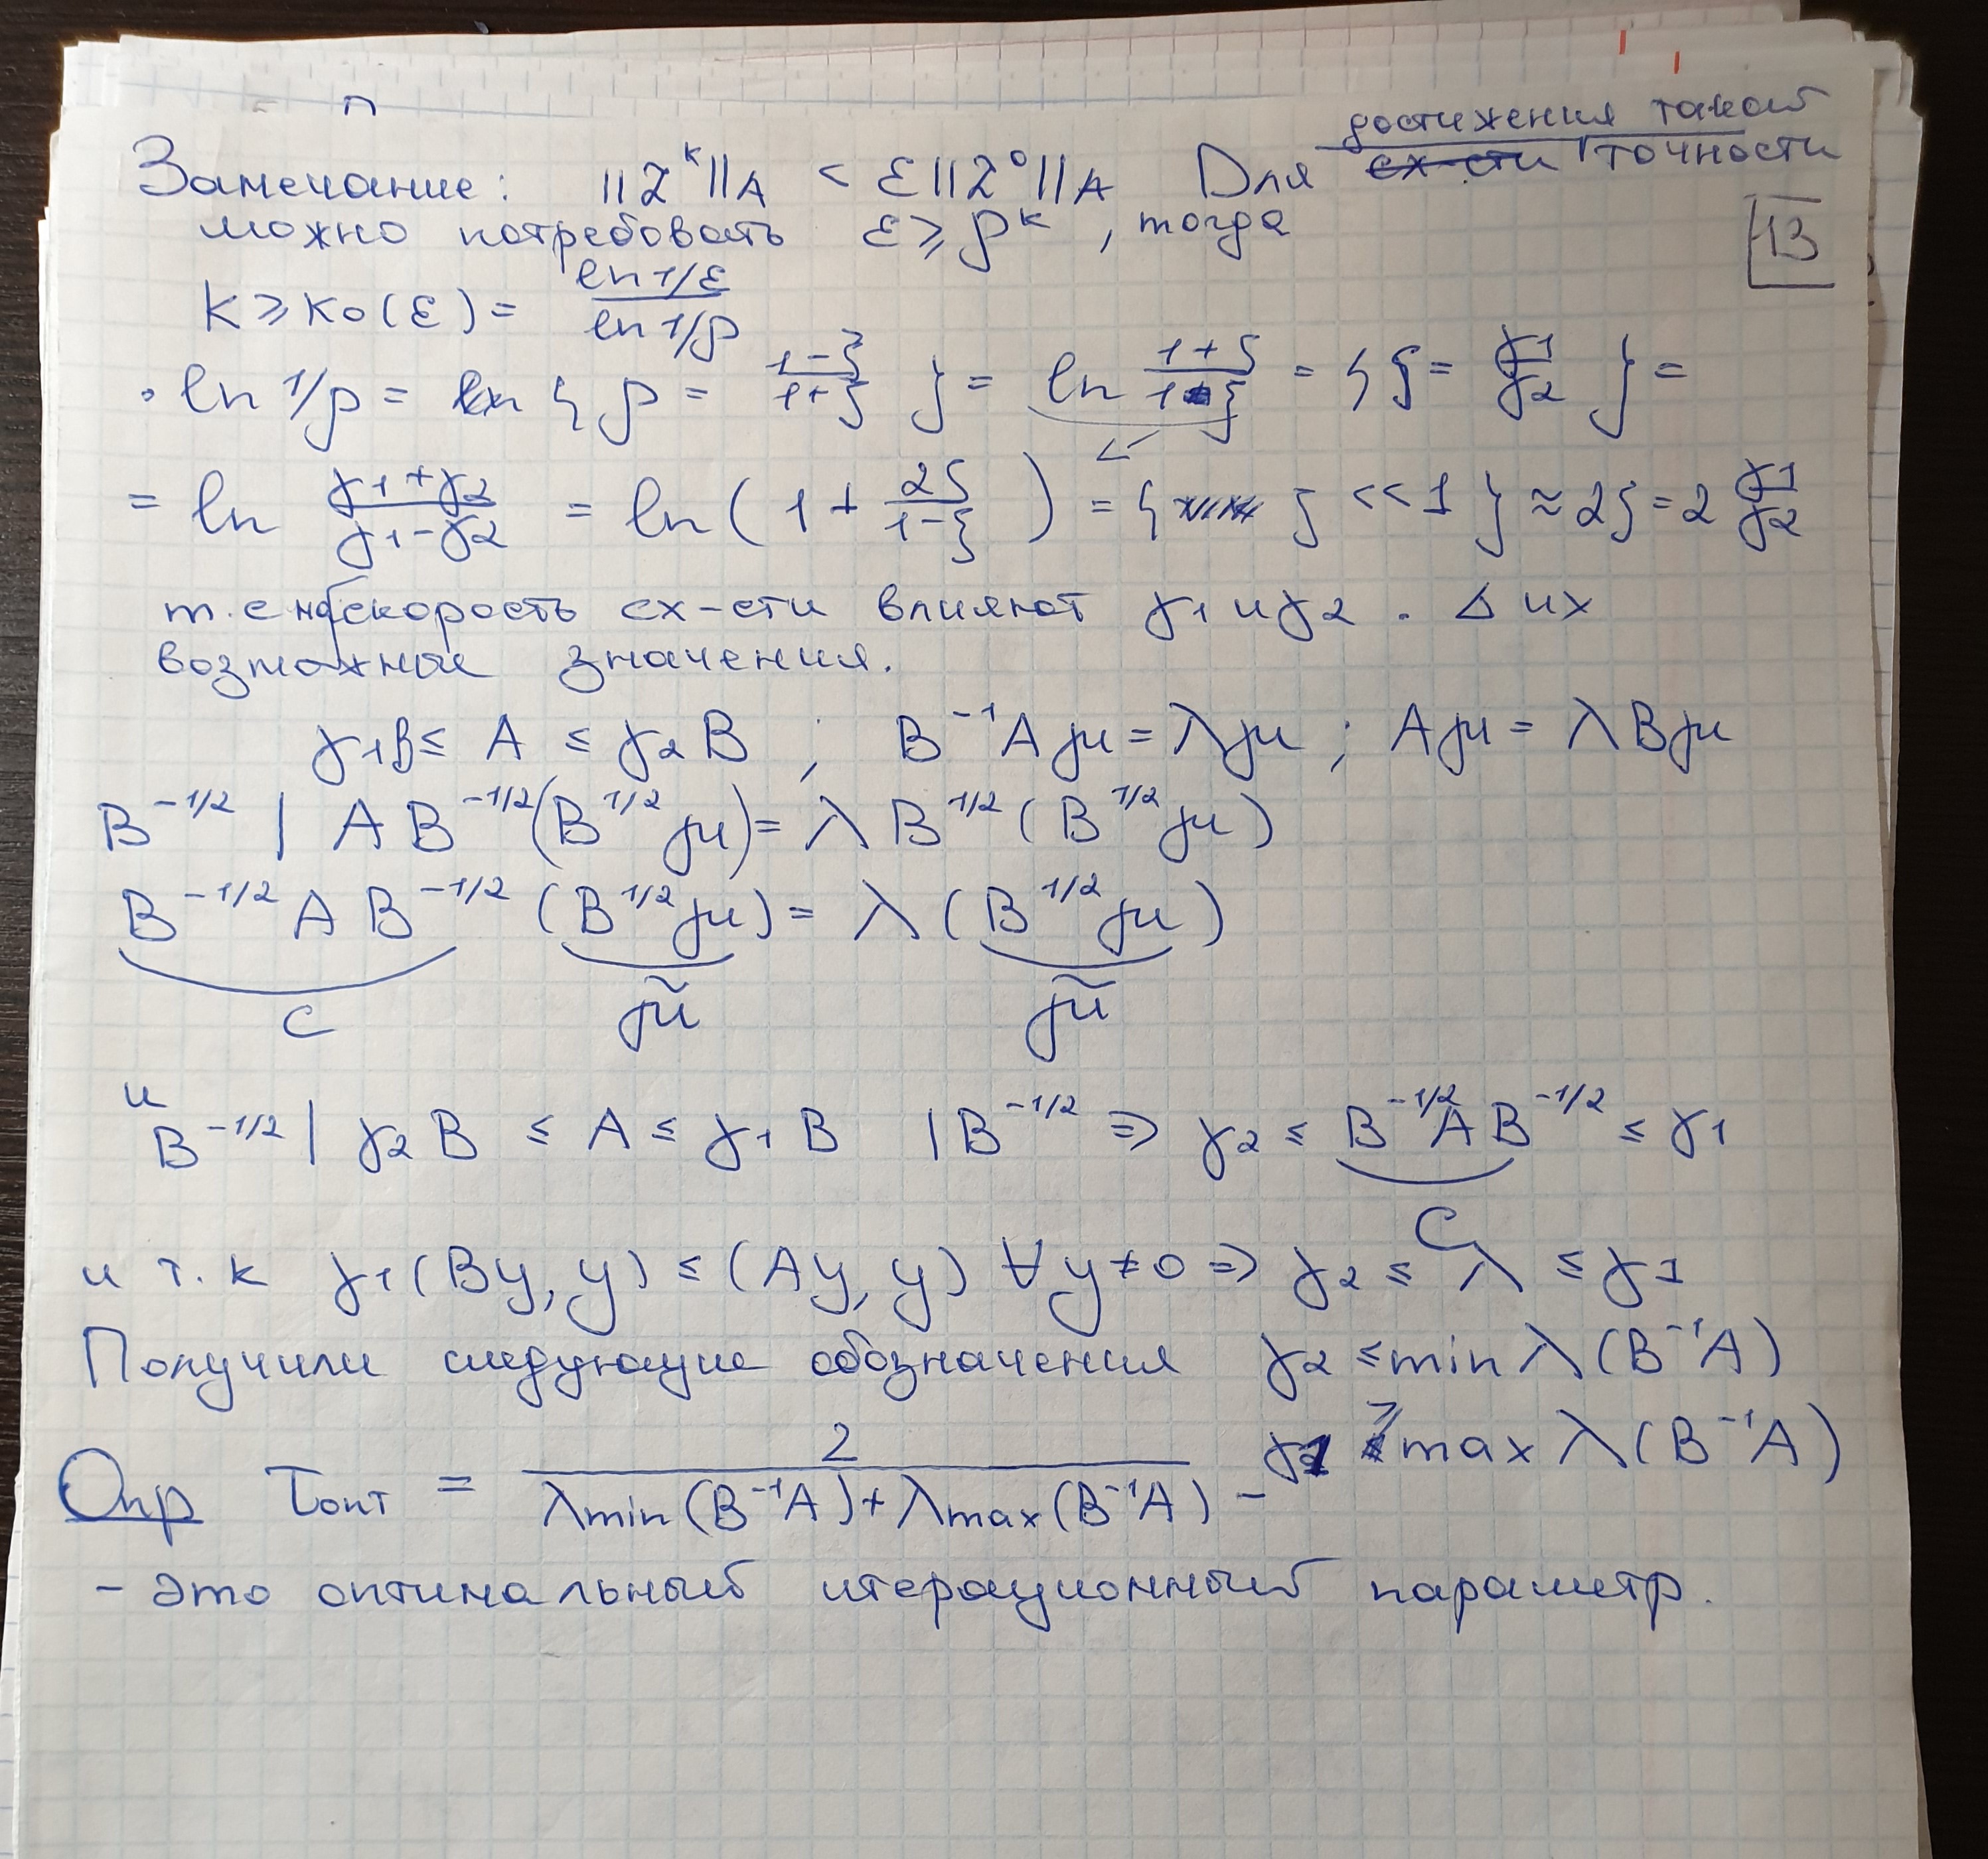 достижения такой
Замечание: ||z^k||_A < ε||z^0||_A Для ~~сх-сти~~ точности
13
можно потребовать ε ≥ ρ^k, тогда
k ≥ k₀(ε) = ln 1/ε / ln 1/ρ
• ln 1/ρ = ln { ρ = (1-ξ)/(1+ξ) } = ln (1+ξ)/(1-ξ) = { ξ = γ₁/γ₂ } =
= ln (γ₁+γ₂)/(γ₁-γ₂) = ln(1 + 2ξ/(1-ξ)) = { ξ << 1 } ≈ 2ξ = 2 γ₁/γ₂
т.е на скорость сх-сти влияют γ₁ и γ₂. Δ их
возможные значения.
γ₁B ≤ A ≤ γ₂B ; B⁻¹Aμ = λμ ; Aμ = λBμ
B^(-1/2) | AB^(-1/2)(B^(1/2)μ) = λB^(1/2)(B^(1/2)μ)
B^(-1/2)AB^(-1/2)(B^(1/2)μ) = λ(B^(1/2)μ)
C μ̃ μ̃
и
B^(-1/2) | γ₂B ≤ A ≤ γ₁B | B^(-1/2) ⇒ γ₂ ≤ B^(-1/2)AB^(-1/2) ≤ γ₁
C
и т.к γ₁(By, y) ≤ (Ay, y) ∀y≠0 ⇒ γ₂ ≤ λ ≤ γ₁
Получили следующие обозначения γ₂ ≤ min λ(B⁻¹A)
γ₁ ≥ max λ(B⁻¹A)
Опр τопт = 2 / (λmin(B⁻¹A) + λmax(B⁻¹A)) -
- это оптимальный итерационный параметр.